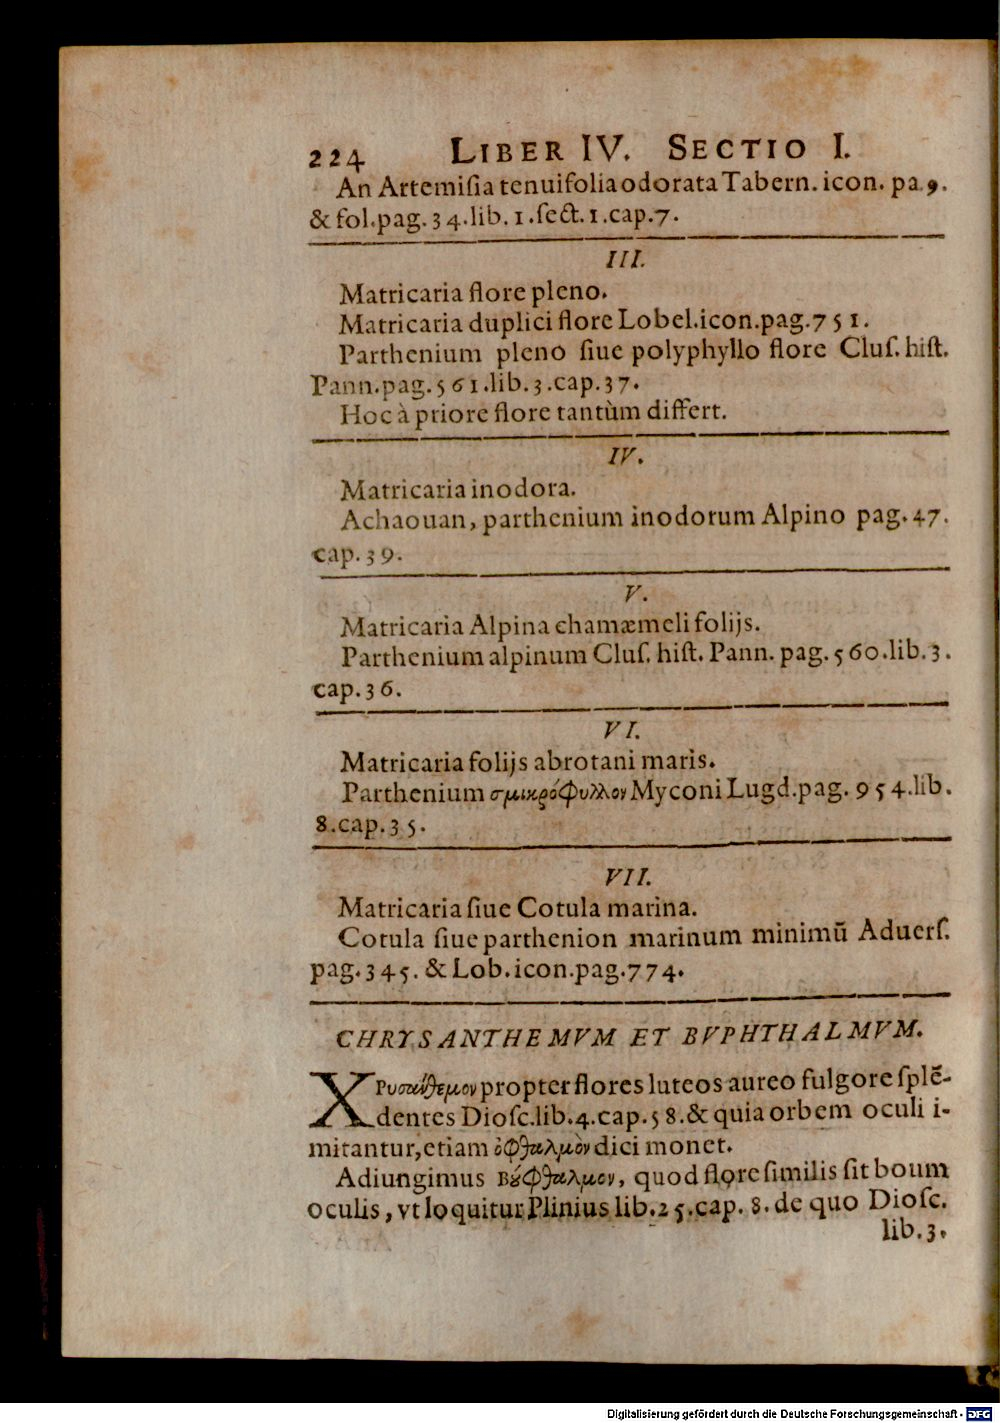 224 LIBER IV. SECTIO I.
An Artemiſia tenuifolia odorata Tabern. icon. pa. 9.
& fol. pag. 34. lib. 1. ſect. 1. cap. 7.
III.
Matricaria flore pleno.
Matricaria duplici flore Lobel. icon. pag. 751.
Parthenium pleno ſiue polyphyllo flore Cluſ. hiſt.
Pann. pag. 561. lib. 3. cap. 37.
Hoc à priore flore tantùm differt.
IV.
Matricaria inodora.
Achaouan, parthenium inodorum Alpino pag. 47.
cap. 39.
V.
Matricaria Alpina chamæmeli folijs.
Parthenium alpinum Cluſ. hiſt. Pann. pag. 560. lib. 3.
cap. 36.
VI.
Matricaria folijs abrotani maris.
Parthenium σμικρόφυλλον Myconi Lugd. pag. 954. lib.
8. cap. 35.
VII.
Matricaria ſiue Cotula marina.
Cotula ſiue parthenion marinum minimū Aduerſ.
pag. 345. & Lob. icon. pag. 774.
CHRYSANTHEMVM ET BVPHTHALMVM.
ΧΡυσάνθεμον propter flores luteos aureo fulgore ſplē-
dentes Dioſc. lib. 4. cap. 58. & quia orbem oculi i-
mitantur, etiam ὀφθαλμὸν dici monet.
Adiungimus Βούφθαλμον, quod flore ſimilis ſit boum
oculis, vt loquitur Plinius lib. 25. cap. 8. de quo Dioſc.
lib. 3.
Digitalisierung gefördert durch die Deutsche Forschungsgemeinschaft - DFG